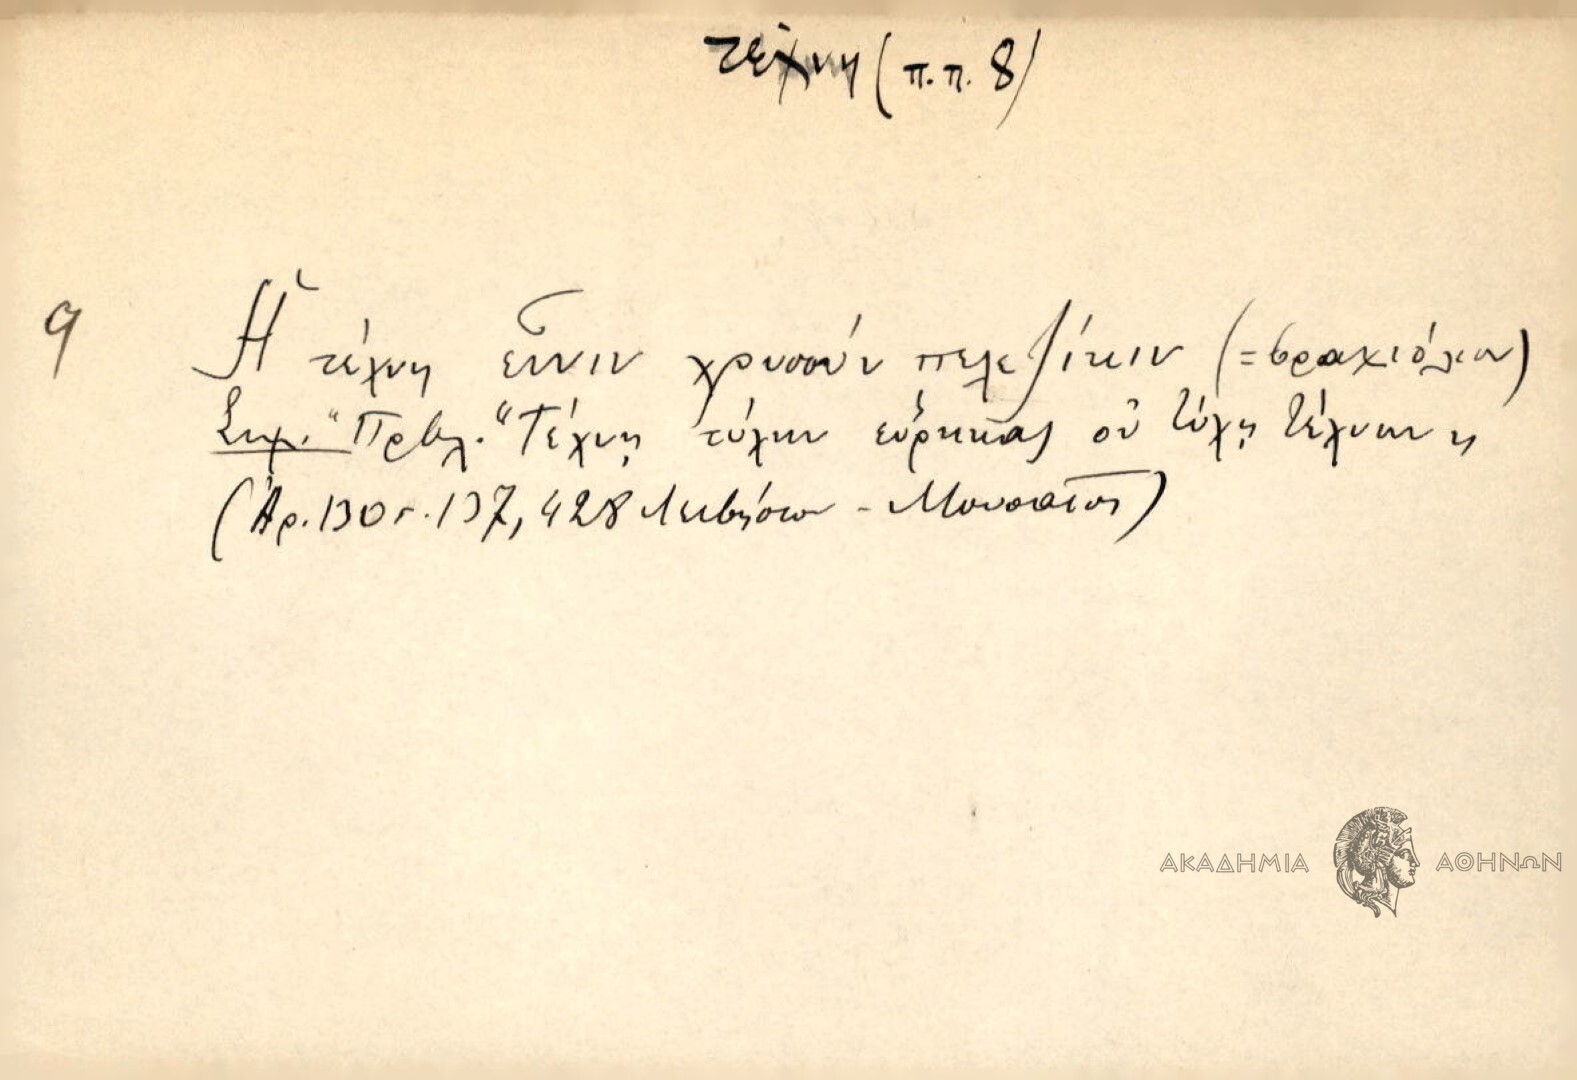 τέχνη (π.π. 8)
9 Ἡ τέχνη εἶνιν χρυσούν πελεζίκιν (= βραχιόλιον)
Σημ. "Πρβλ. "Τέχνη τύχην εὕρηκας οὐ τύχη τέχνην
(Ἀρ. 130 σ. 137, 428 Λεβήσιον - Μουσαῖος)
ΑΚΑΔΗΜΙΑ ΑΘΗΝΩΝ